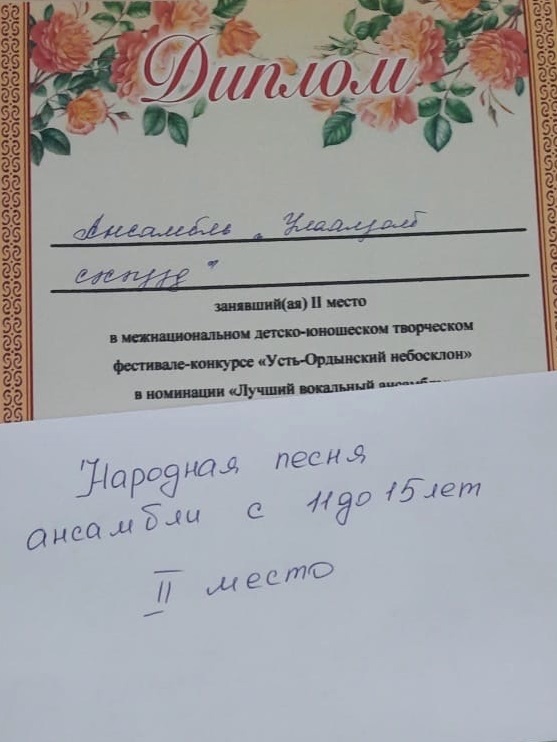 Диплом
Ансамбль „
занявший(ая) II место
в межнациональном детско-юношеском творческом
фестивале-конкурсе «Усть-Ордынский небосклон»
в номинации «Лучший вокальный ансамбль»
Народная песня
ансамбли с 11 до 15 лет
II место